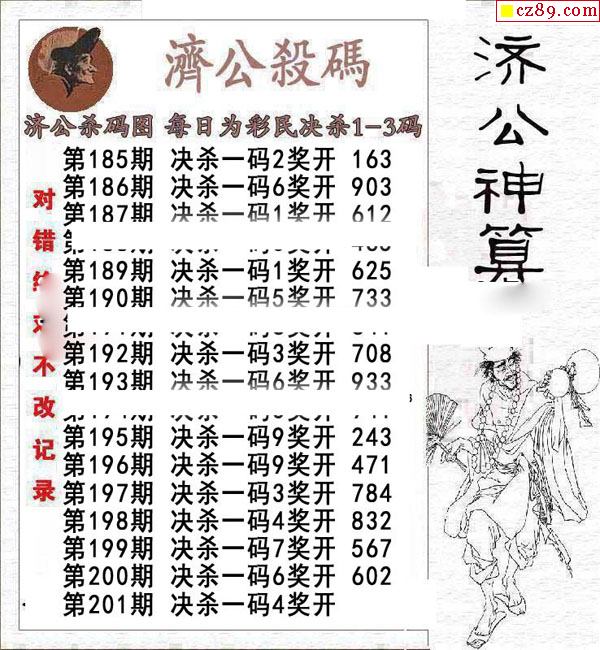 cz89.com
濟公殺碼
济公杀码图 每日为彩民决杀1-3码
第185期 决杀一码2奖开 163
第186期 决杀一码6奖开 903
第187期 决杀一码1奖开 612
第189期 决杀一码1奖开 625
第190期 决杀一码5奖开 733
第192期 决杀一码3奖开 708
第193期 决杀一码6奖开 933
第195期 决杀一码9奖开 243
第196期 决杀一码9奖开 471
第197期 决杀一码3奖开 784
第198期 决杀一码4奖开 832
第199期 决杀一码7奖开 567
第200期 决杀一码6奖开 602
第201期 决杀一码4奖开
对错
不改记录
济公神算